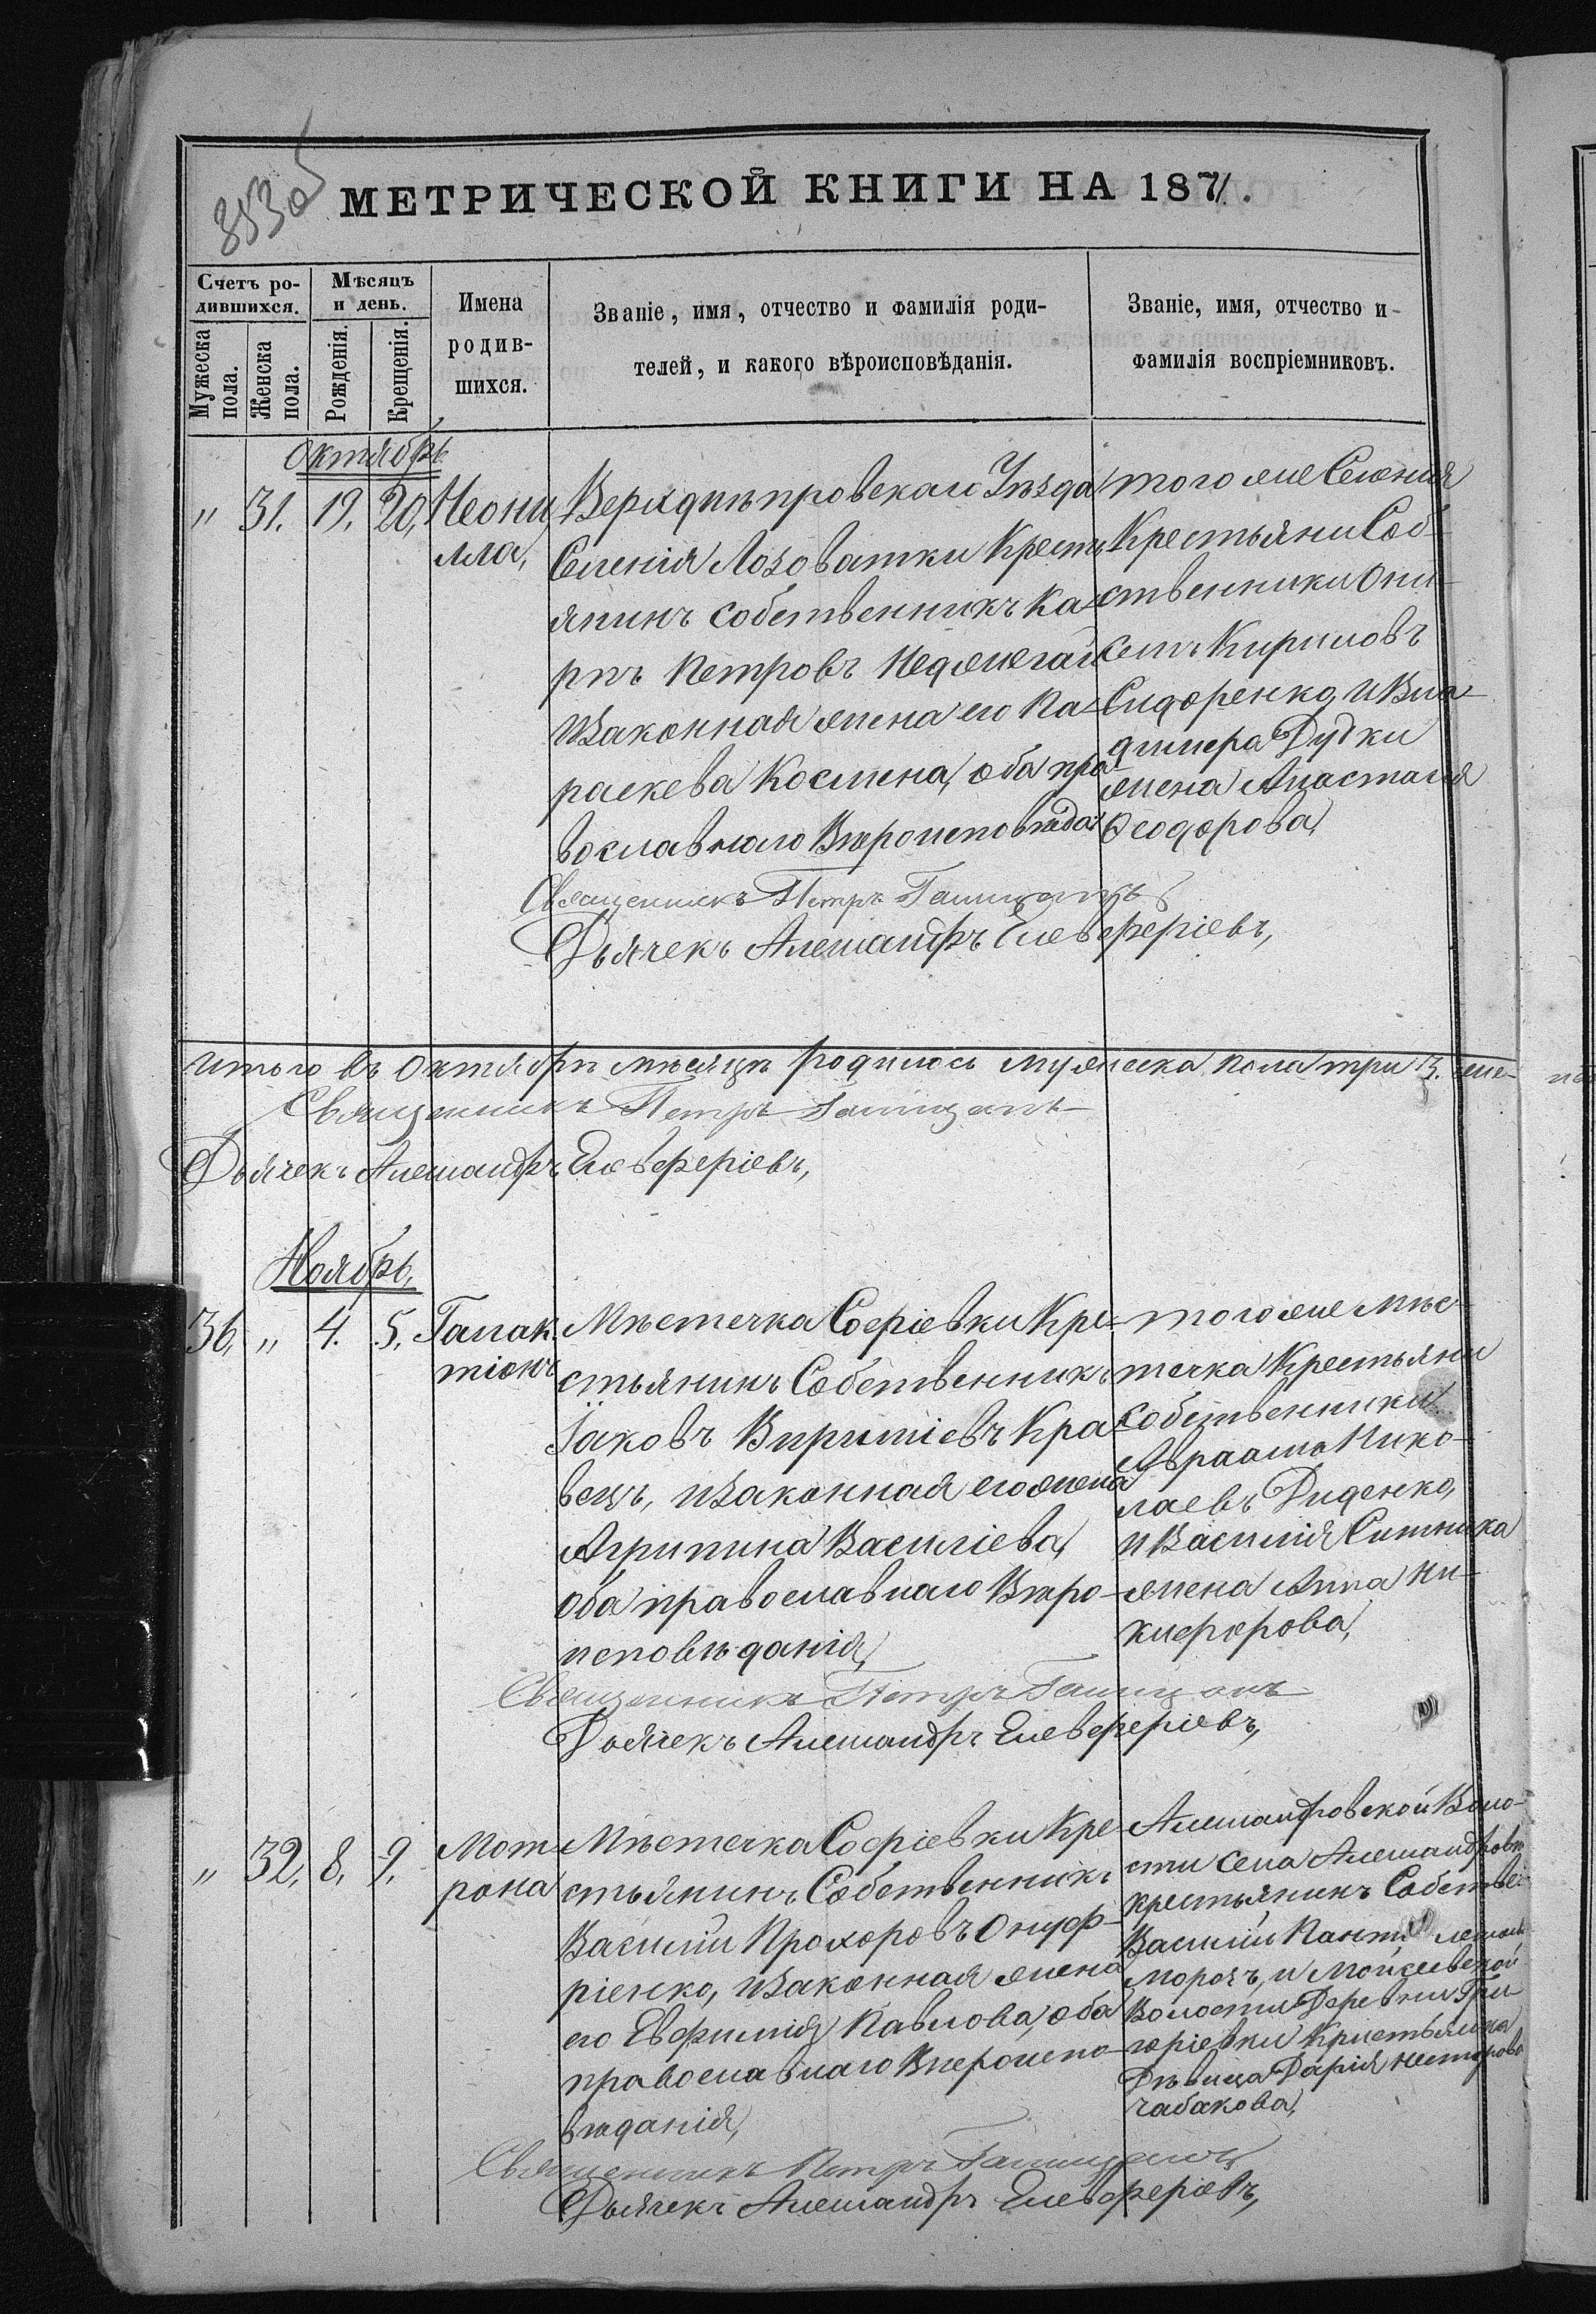 853об
МЕТРИЧЕСКОЙ КНИГИ НА 1871.
Счетъ ро-
дившихся.
Мужеска пола.
Женска пола.
Мѣсяцъ
и день.
Рожденія.
Крещенія.
Имена
родив-
шихся.
Званіе, имя, отчество и фамилія роди-
телей, и какого вѣроисповѣданія.
Званіе, имя, отчество и
фамилія воспріемниковъ.
Октябрь
" 31. 19. 20.
Неони
лла,
Верхднѣпровскаго Уѣзда
Селенія Лозоватки Крестъ
янинъ собственникъ Ка-
рпъ Петровъ
Изаконная жена его Па-
раскева Космина, оба пра-
вославнаго Вѣроисповѣда:
того же Селенія
Крестьяни Соб-
ственники Они-
симъ Кириловъ
Сидоренко, и Вла-
димера Дудки
жена Анастасія
Ѳеодорова,
Священникъ Петръ
Дьячекъ Алешандръ Елевферіевъ,
Итого въ Октябрѣ мѣсяцѣ родилось мужеска пола три 3. жене-
Священникъ Петръ
Дьячекъ Алешандръ Елевферіевъ,
Ноябрь,
36, " 4. 5.
Галак
тіонъ
Мѣстечка Софіевки Кре-
стьянинъ Собственникъ
Іаковъ Кра-
вецъ, изаконная его жена
Агрипина Василіева,
оба православнаго Вѣро-
исповѣданія,
того же мѣс-
течка Крестьяни
собственники
Авраамъ Нико-
лаевъ Диденко,
и Василія Ситника
жена Анна Ни-
кифорова,
Священникъ Петръ
Дьячекъ Алешандръ Елевферіевъ,
" 32, 8, 9,
Мот-
рона
Мѣстечка Софіевки Кре-
стьянинъ Собственникъ
Василій Прохоровъ Онуф-
ріенко, изаконная жена
его Евфимія Павлова, оба
православнаго Вѣроиспо-
вѣданія,
Алешандровской Воло-
сти села Алешандровки
крестьянинъ Собстве:
Василій
Морозъ, и Мойсеевской
Волости Деревни Гри
горіевки Кристьянка
Дѣвица Дарія Несторова
Чабакова,
Священникъ Петръ
Дьячекъ Алешандръ Елевферіевъ,